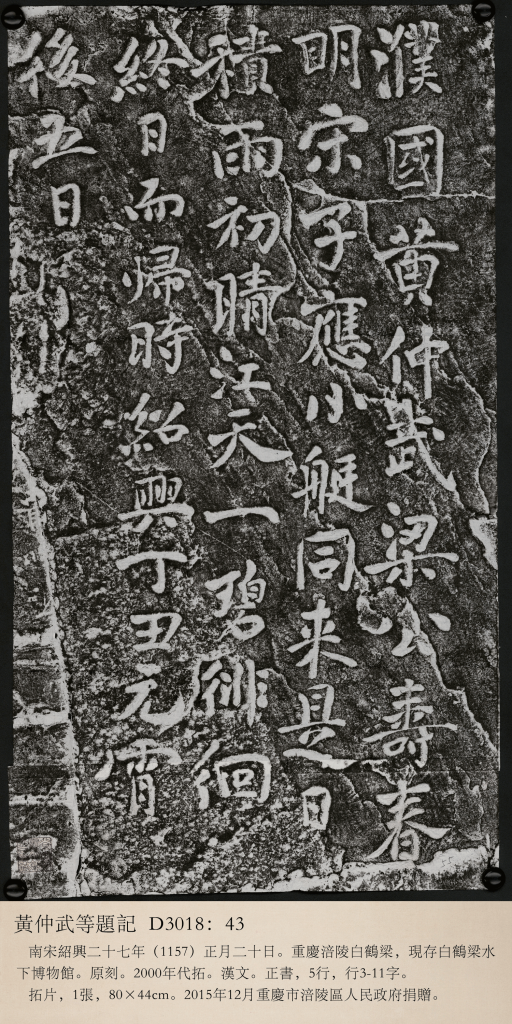 濮國黄仲武梁公壽春
明宋子應小艇同来是日
積雨初晴江天一碧徘徊
終日而歸時紹興丁丑元宵
後五日
黃仲武等題記 D3018：43
南宋紹興二十七年（1157）正月二十日。重慶涪陵白鶴梁，現存白鶴梁水
下博物館。原刻。2000年代拓。漢文。正書，5行，行3-11字。
拓片，1張，80×44cm。2015年12月重慶市涪陵區人民政府捐贈。